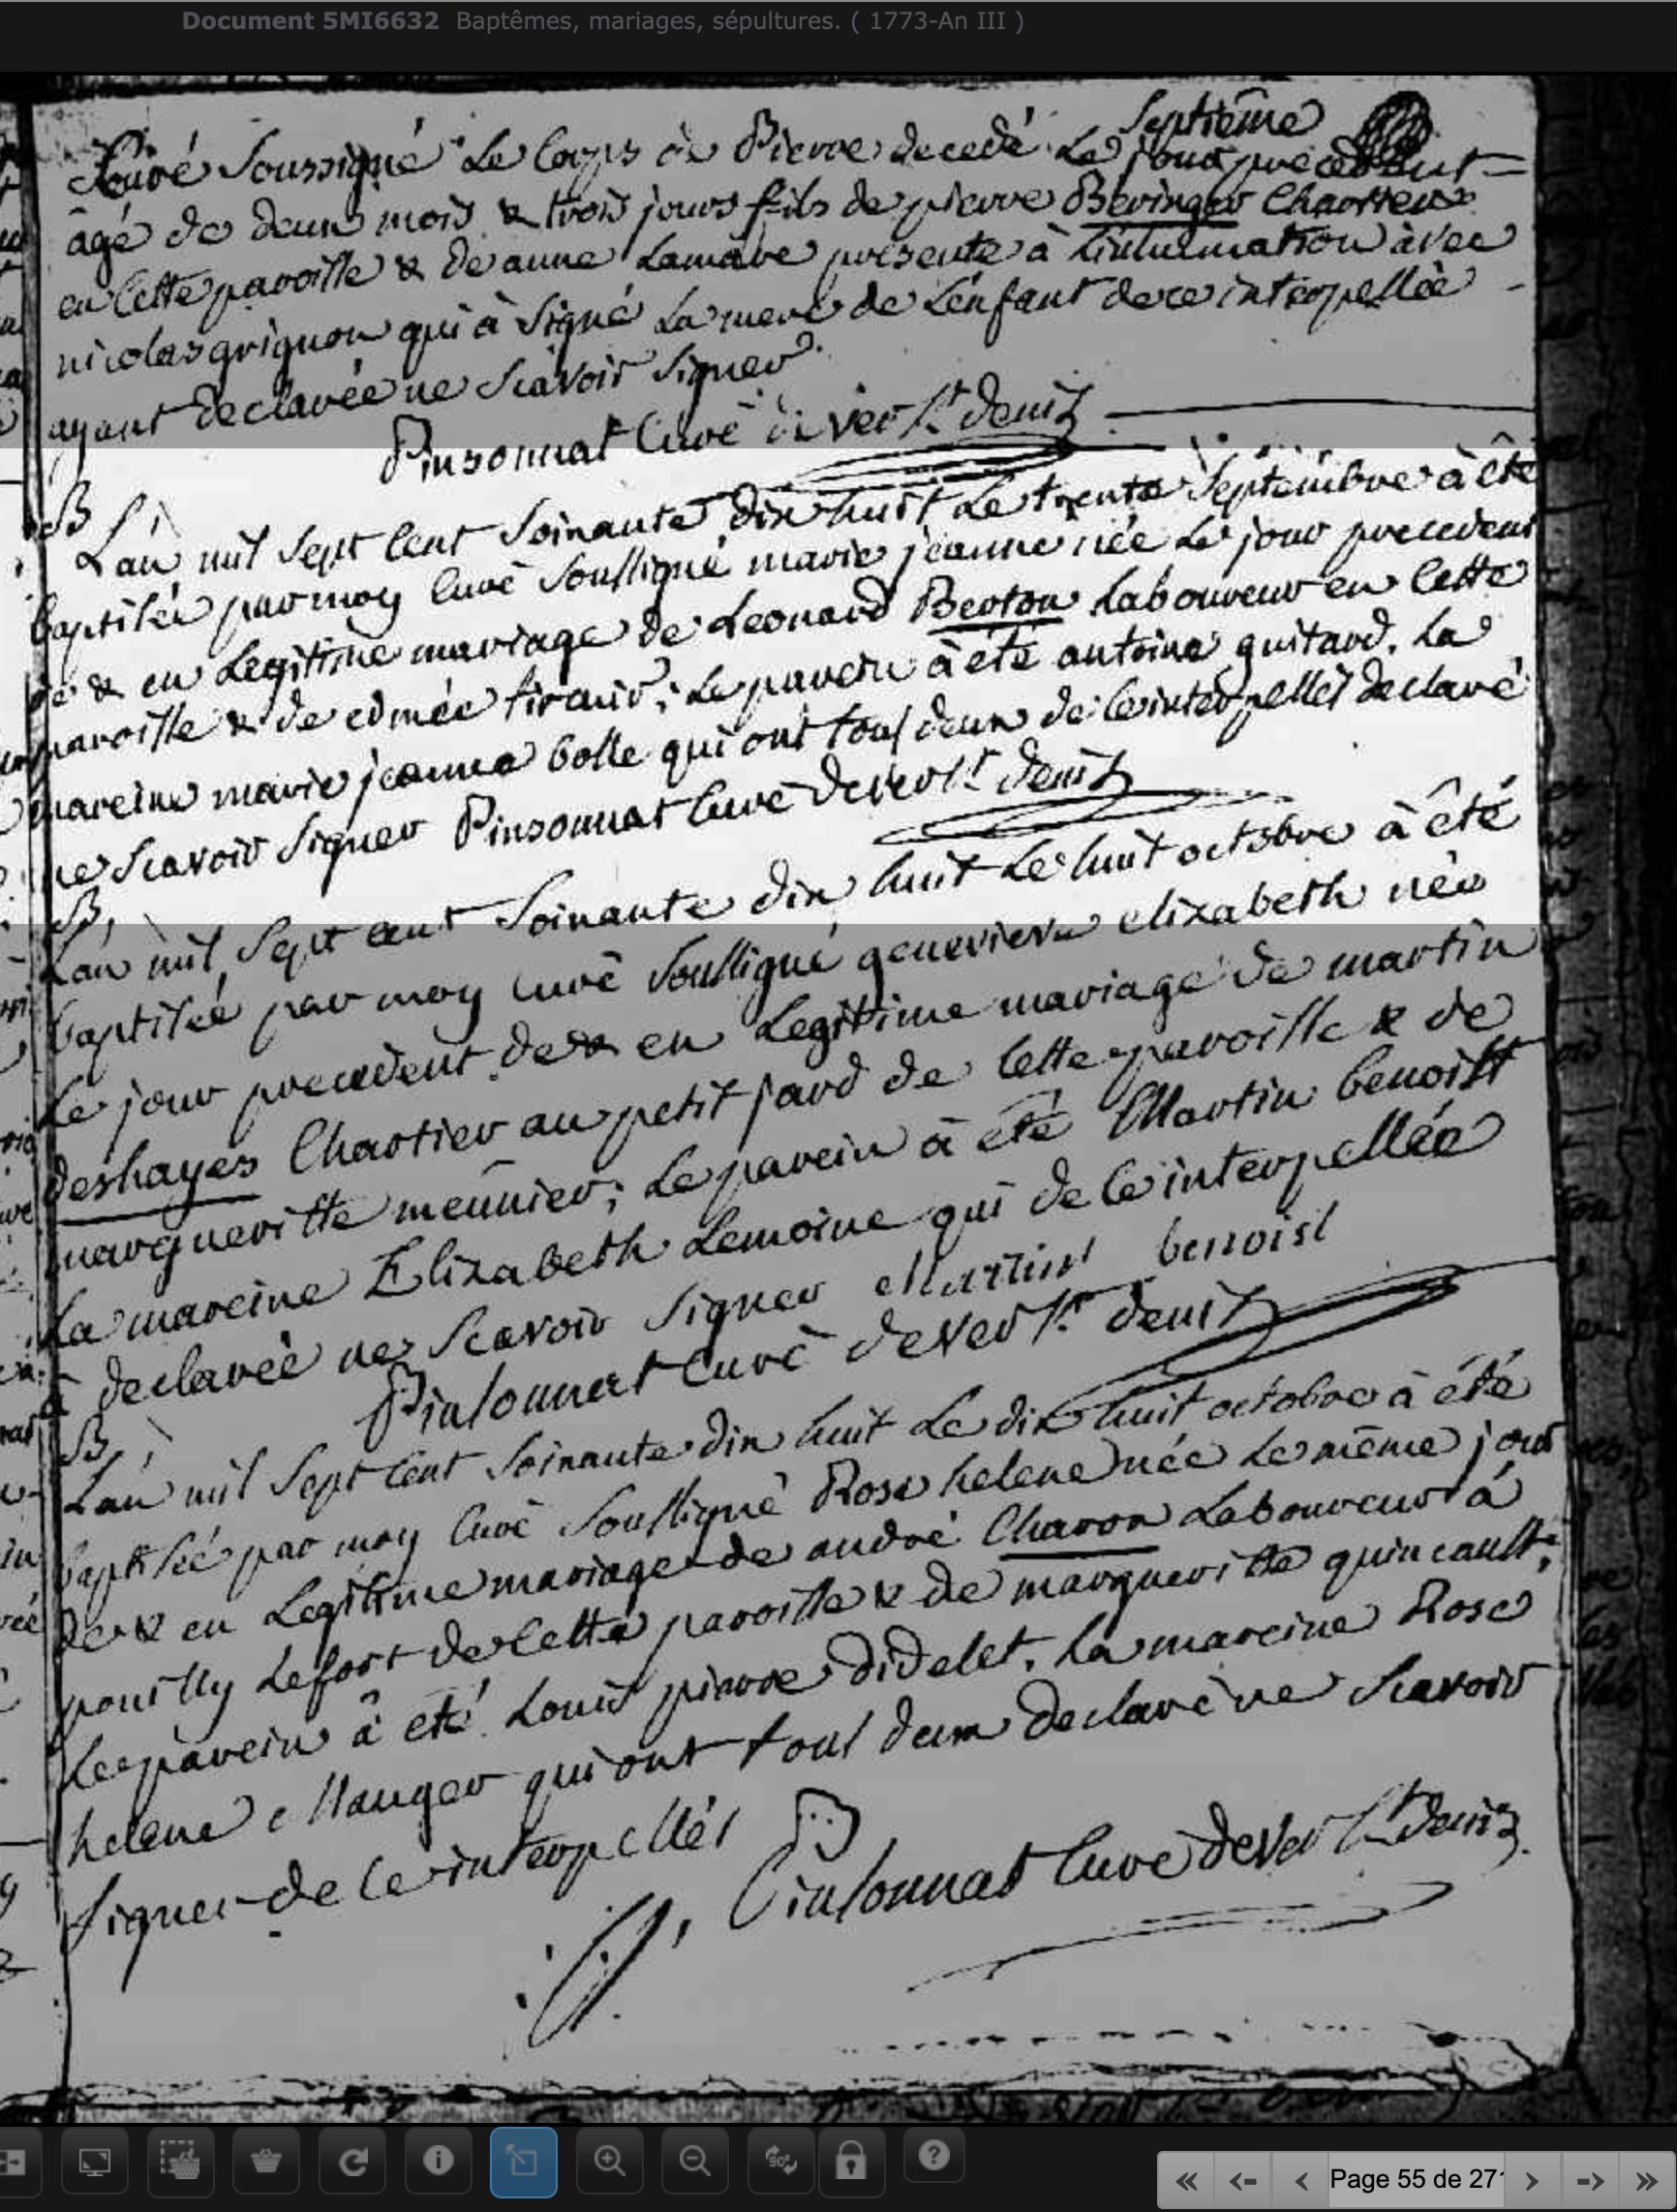 Document 5MI6632 Baptêmes, mariages, sépultures. ( 1773-An III )
septième
Curé soussigné Le corps de Pierre decedé Le jour precedent
âgé de deux mois & trois jours fils de pierre Beringer Chartier
en cette paroisse & de anne Lamare presente à L'inhumation avec
nicolas grignon qui à signé La mere de L'enfant de ce interpellée
ayant declarée ne scavoir signer.
Pinsonnat Curé de ver st. denis
B
L'an mil sept cent soixante dix huit Le trente septembre à été
baptisée par moy curé soussigné marie jeanne née Le jour precedent
de & en Legitime mariage de Leonard Berton Laboureur en cette
paroisse & de edmée ; Le parein à été antoine guitard, La
mareine marie jeanne bolle qui ont tous deux de ce interpellés declaré
ne scavoir signer Pinsonnat Curé de ver st. denis
B.
L'an mil sept cent soixante dix huit Le huit octobre à été
baptisée par moy curé soussigné genevieve elizabeth née
Le jour precedent de & en Legitime mariage de martin
deshayes Chartier au petit jard de cette paroisse & de
margueritte meunier; Le parein à été Martin benoist
La mareine Elizabeth Lemoine qui de ce interpellée
à declarée ne scavoir signer Martin benoist
Pinsonnat Curé de Ver st. denis
B.
L'an mil sept cent soixante dix huit Le dix huit octobre à été
baptisée par moy curé soussigné Rose helene née Le même jour
de & en Legitime mariage de andré Charon Laboureur à
pouilly Lefort de cette paroisse & de margueritte quincault;
Le parein à été Louis pierre didelet, La mareine Rose
helene Mauger qui ont tous deux declaré ne scavoir
signer de ce interpellés
Pinsonnat Curé de Ver st. Denis
i
90°
?
Page 55 de 271